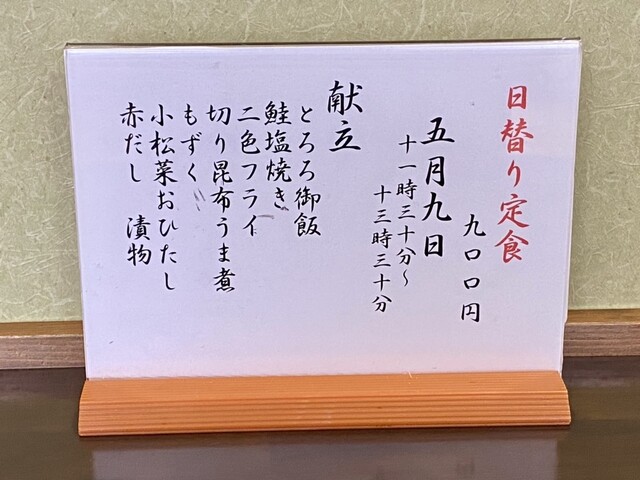 日替り定食
九〇〇円
五月九日
十一時三十分～
十三時三十分
献立
とろろ御飯
鮭塩焼き
二色フライ
切り昆布うま煮
もずく
小松菜おひたし
赤だし 漬物